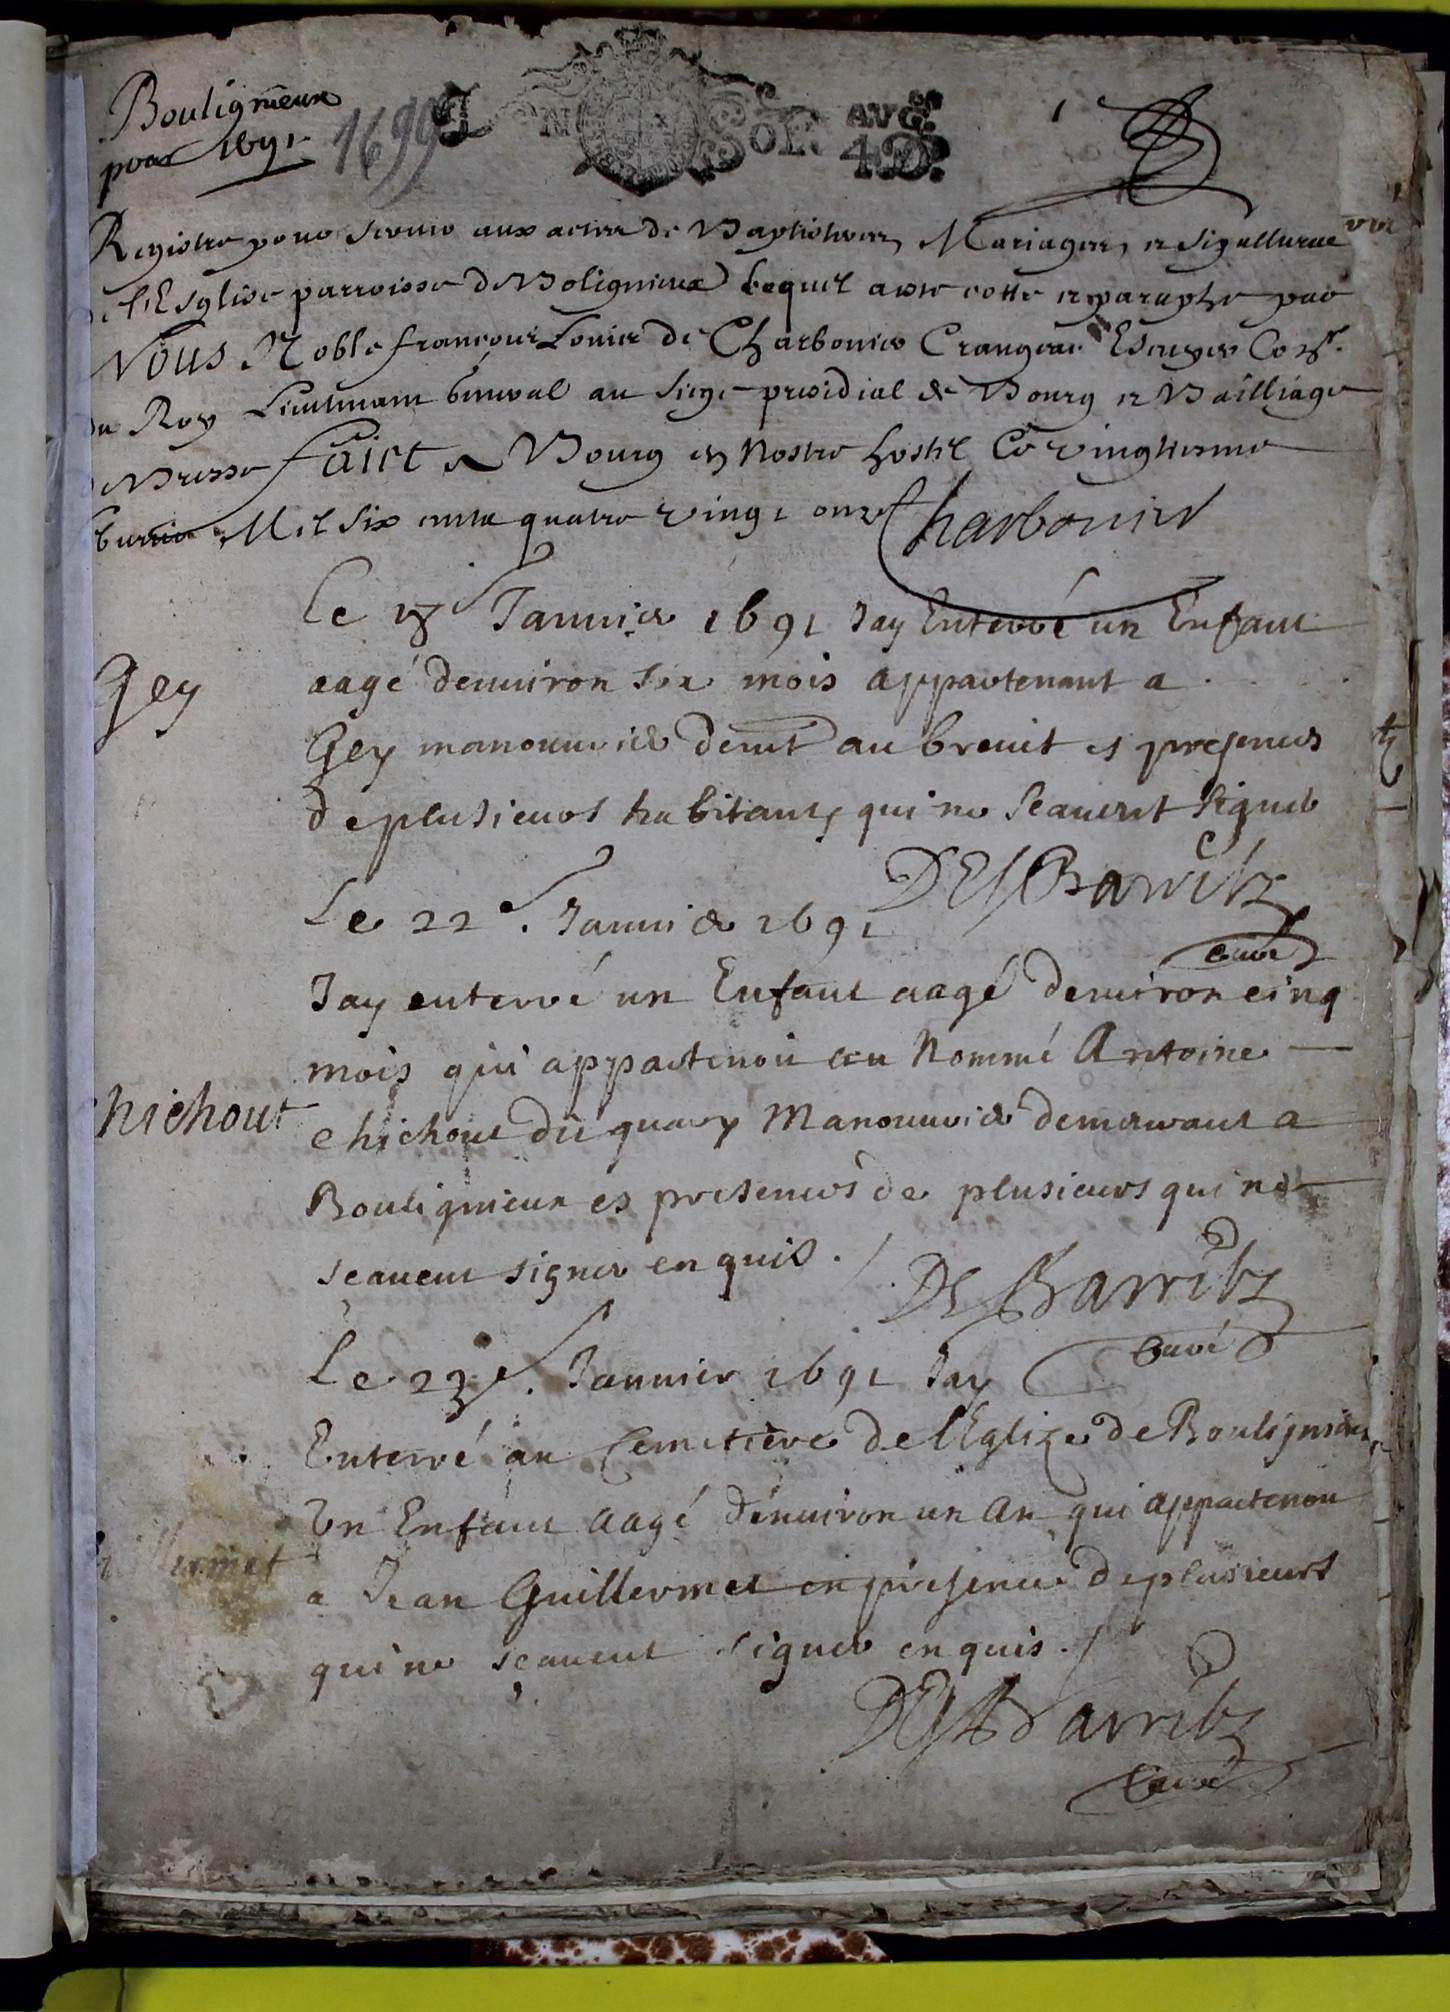 Bouligneux
pour 1691
1699
SOLS AVG.
4 D.
Registre pour servir aux actes de Baptistere, Mariages, et Sepulturae
de l'Esglise parroisse de Boligneux lequel a este cotte et paraphe par
Nous Noble françois Louis de Charbonier Crangeac Escuyer Cons.r
du Roy Lieutenant general au siege presidial de Bourg et Bailliage
de Bresse faict a Bourg en nostre hostel Ce vingtiesme
Mil six cents quatre vingt onze Charbonier
Le Januier 1691 Jay Enterré un Enfant
Gey
aagé denuiron six mois appartenant a . . .
Gey manouurier demt au breuit es presences
de plusieurs habitants qui ne scauent signer
DesBarritz
curé
Le 22e. Januier 1691
Jay enterré un Enfant aagé denuiron cinq
mois qui appartenoit au nommé Antoine
chichout
chichout du quary Manouurier demeurant a
Bouligneux es presences de plusieurs qui ne
scauent signer enquis ./.
DesBarritz
Curé
Le 23e. Januier 1691 Jay
Enterré au Cemetiere de l'Eglize de Bouligneux
Un Enfant aagé denuiron un an qui appartenoit
guillermet
a Jean Guillermet en presence de plusieurs
qui ne scauent signer enquis ./.
DesBarritz
Curé